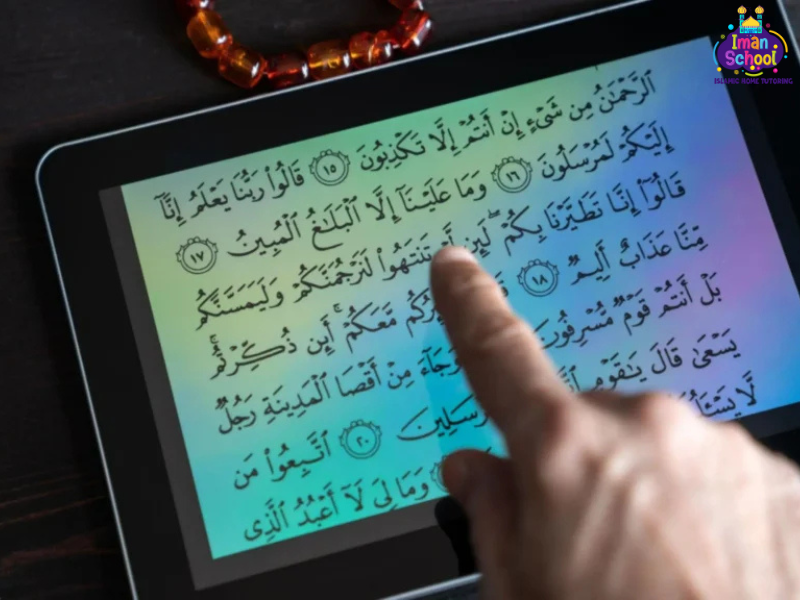 Iman
School
ISLAMIC HOME TUTORING
ٱلرَّحۡمَٰنُ مِن شَيۡءٍ إِنۡ أَنتُمۡ إِلَّا تَكۡذِبُونَ ١٥ قَالُواْ رَبُّنَا يَعۡلَمُ إِنَّآ
إِلَيۡكُمۡ لَمُرۡسَلُونَ ١٦ وَمَا عَلَيۡنَآ إِلَّا ٱلۡبَلَٰغُ ٱلۡمُبِينُ ١٧
قَالُوٓاْ إِنَّا تَطَيَّرۡنَا بِكُمۡۖ لَئِن تَنتَهُواْ لَنَرۡجُمَنَّكُمۡ وَلَيَمَسَّنَّكُم
مِّنَّا عَذَابٌ أَلِيمٞ ١٨ مَّعَكُمۡ أَئِن ذُكِّرۡتُمۚ
بَلۡ أَنتُمۡ قَوۡمٞ مُّسۡرِفُونَ وَجَآءَ مِنۡ أَقۡصَا ٱلۡمَدِينَةِ رَجُلٞ
يَسۡعَىٰ قَالَ يَٰقَوۡمِ ٢٠ ٱتَّبِعُواْ مَن
لَّا وَمَا لِيَ لَآ أَعۡبُدُ ٱلَّذِي